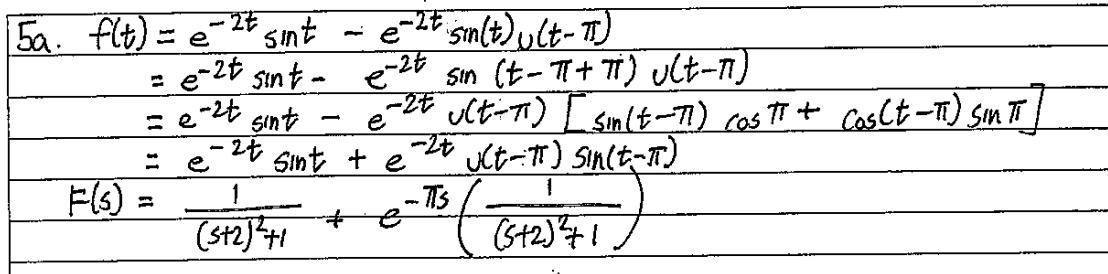 5a. f(t) = e^{-2t} sint - e^{-2t} sin(t) u(t-π)
= e^{-2t} sint - e^{-2t} sin (t-π+π) u(t-π)
= e^{-2t} sint - e^{-2t} u(t-π) [sin(t-π) cos π + cos(t-π) sin π]
= e^{-2t} sint + e^{-2t} u(t-π) sin(t-π)
F(s) = \frac{1}{(s+2)^2+1} + e^{-πs} ( \frac{1}{(s+2)^2+1} )